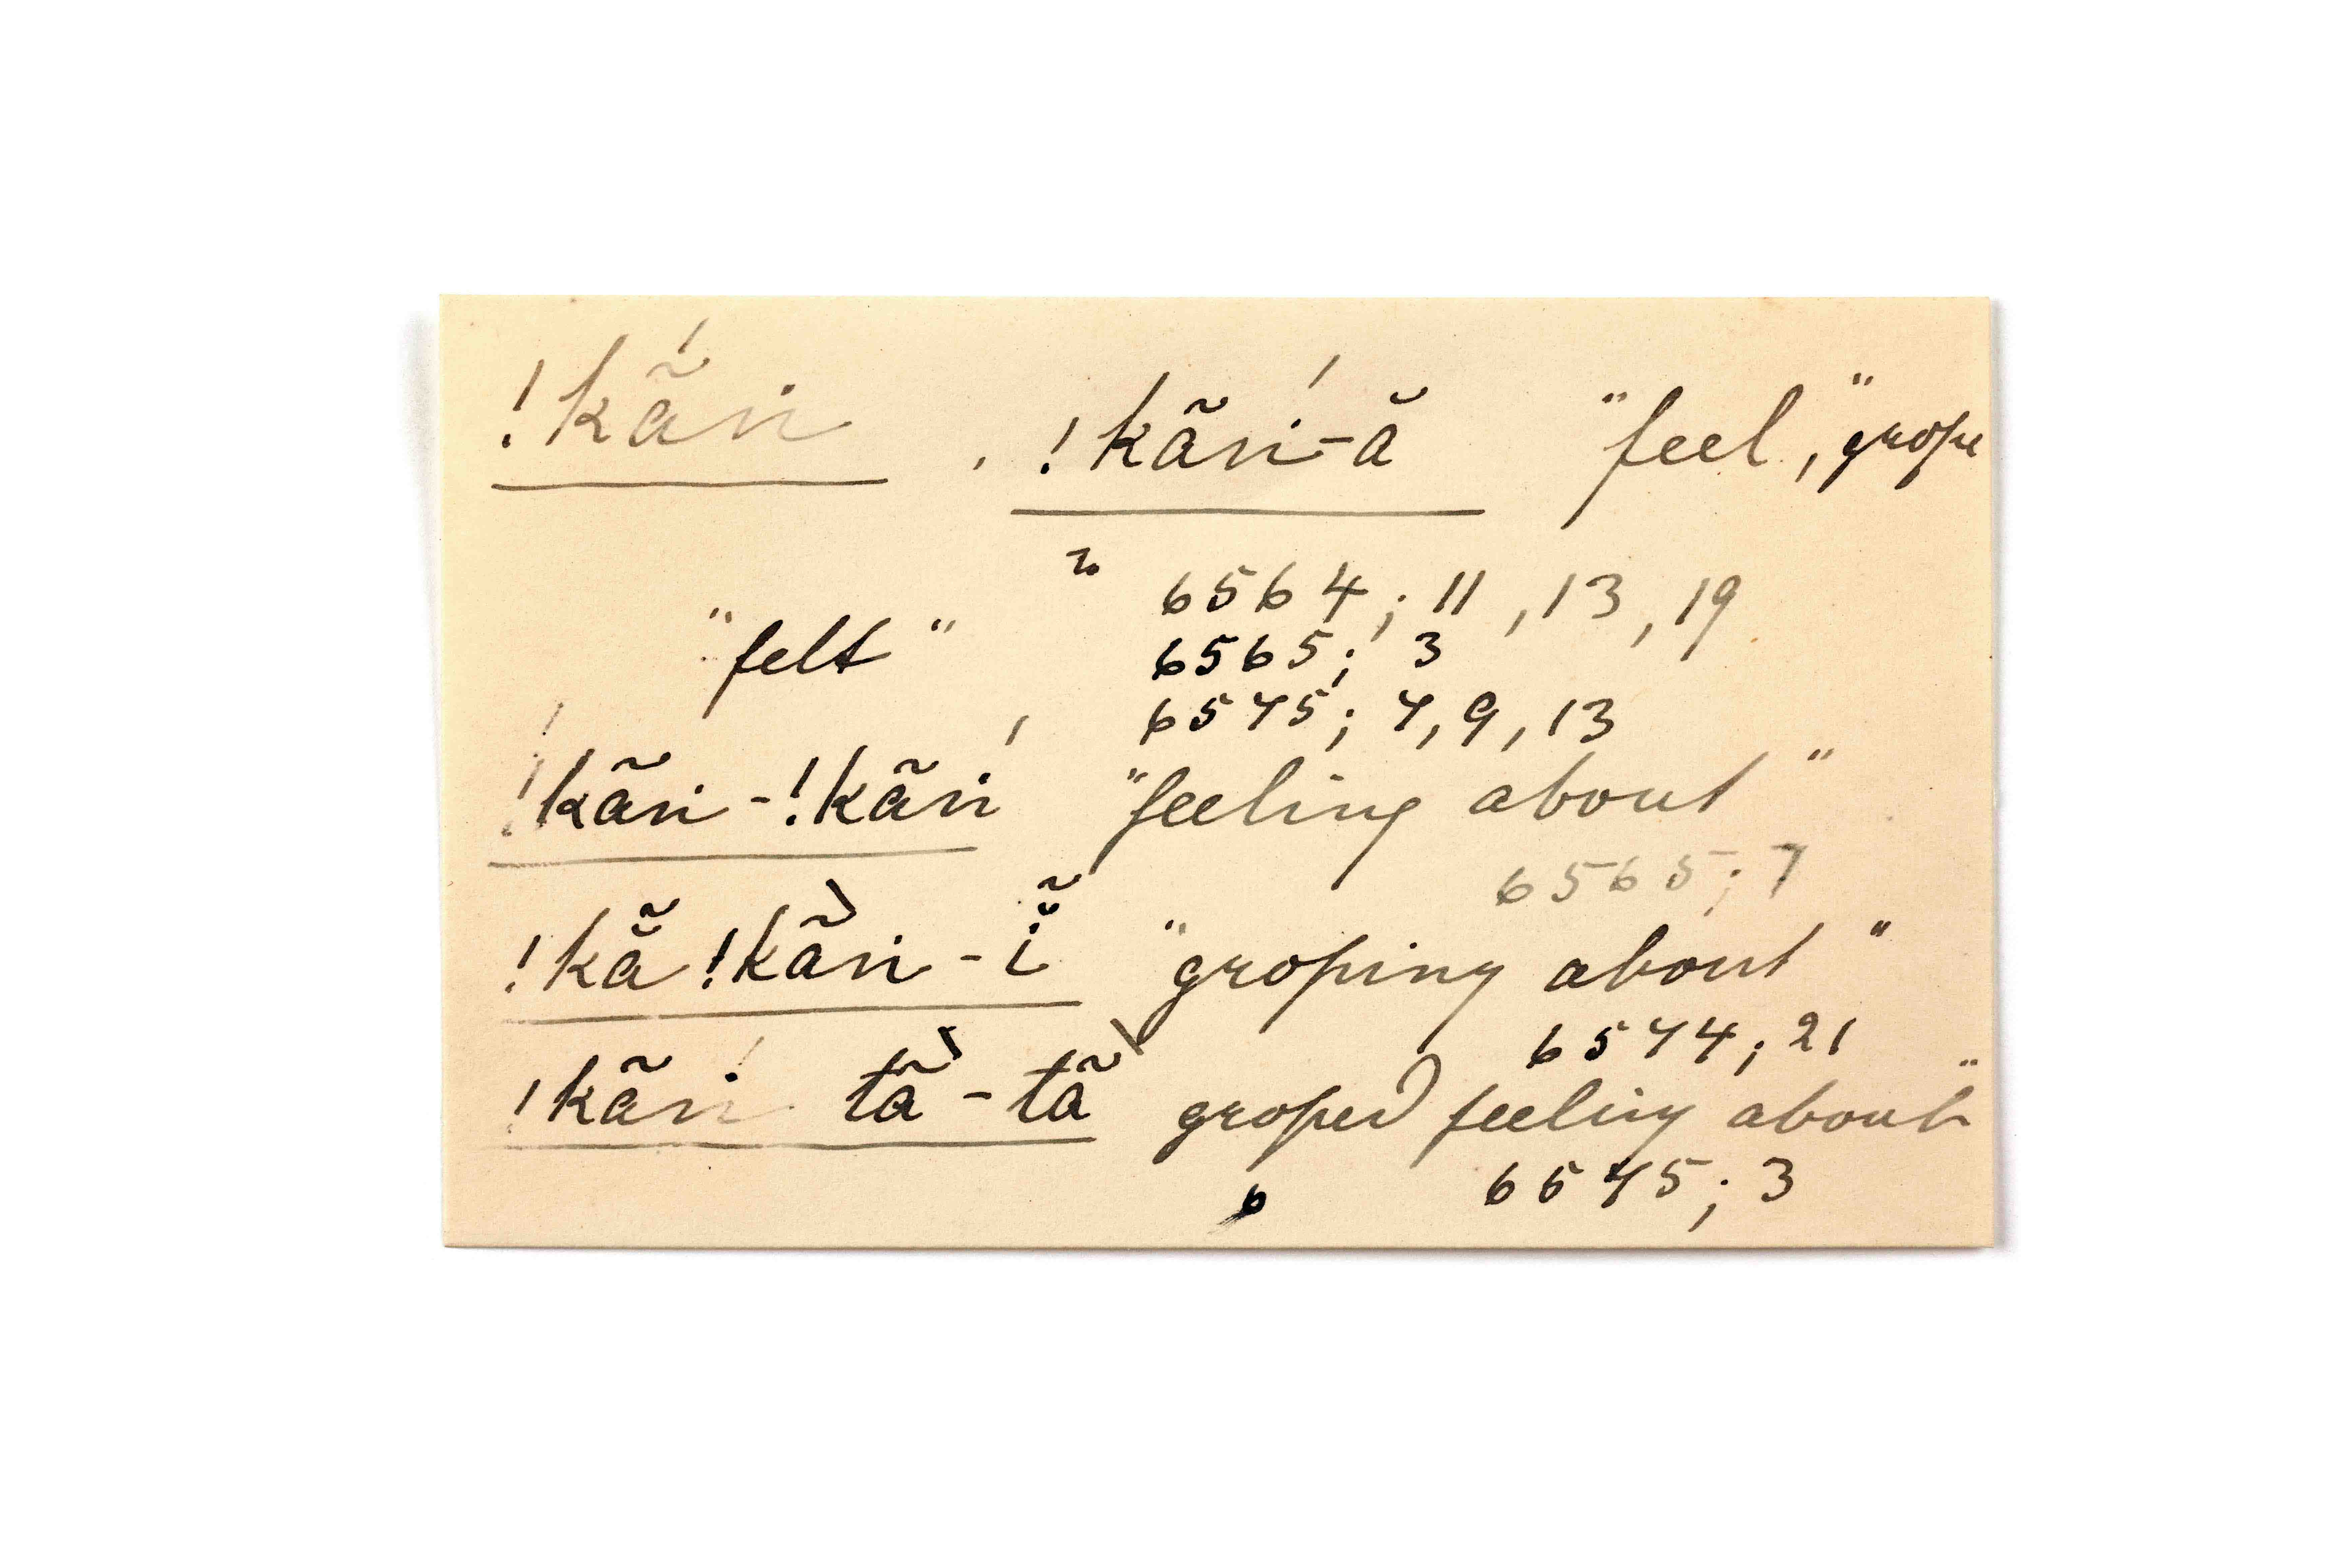 !kã́ri , !kãri̍-ă "feel", grope
2. 6564; 11, 13, 19
"felt" 6565; 3
6575; 7, 9, 13
!kãri-!kãri̍ "feeling about"
6565; 7
!kã̆ !kã̀ri-ĭ̃ "groping about"
6574; 21
!kãri̍ tã̀-tã̀ groped feeling about"
6575; 3